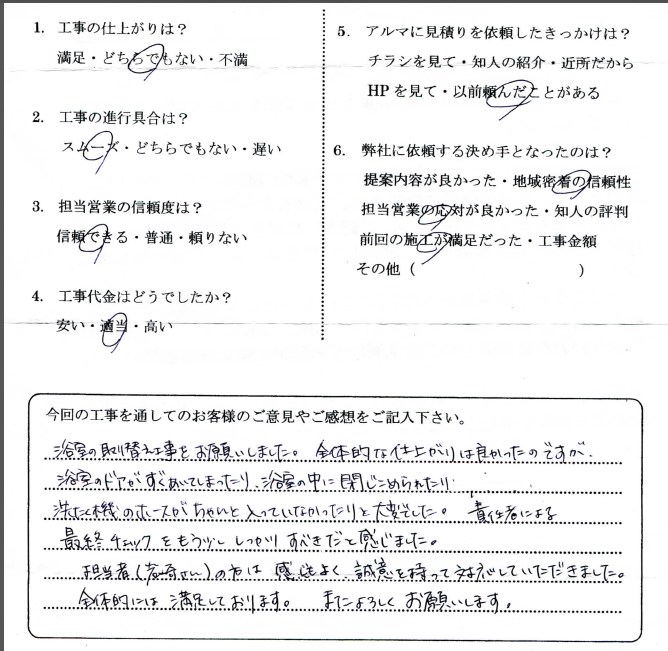 1. 工事の仕上がりは？
満足・どちらでもない・不満
2. 工事の進行具合は？
スムーズ・どちらでもない・遅い
3. 担当営業の信頼度は？
信頼できる・普通・頼りない
4. 工事代金はどうでしたか？
安い・適当・高い
5. アルマに見積りを依頼したきっかけは？
チラシを見て・知人の紹介・近所だから
HPを見て・以前頼んだことがある
6. 弊社に依頼する決め手となったのは？
提案内容が良かった・地域密着の信頼性
担当営業の応対が良かった・知人の評判
前回の施工が満足だった・工事金額
その他（　　　　　　　　　　）
今回の工事を通してのお客様のご意見やご感想をご記入下さい。
浴室の取り替え工事をお願いしました。全体的な仕上がりは良かったのですが、
浴室のドアがすぐあいてしまったり、浴室の中に閉じこめられたり
洗たく機のホースがちゃんと入っていなかったりと大変でした。責任者による
最終チェックをもう少ししっかりすべきだと感じました。
担当者（さん）の方は感じもよく、誠意を持って対応していただきました。
全体的には満足しております。またよろしくお願いします。